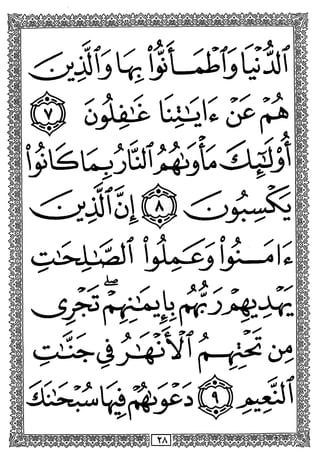 ٱلدُّنْيَا وَٱطْمَأَنُّوا۟ بِهَا وَٱلَّذِينَ
هُمْ عَنْ ءَايَـٰتِنَا غَـٰفِلُونَ ٧
أُو۟لَـٰٓئِكَ مَأْوَىٰهُمُ ٱلنَّارُ بِمَا كَانُوا۟
يَكْسِبُونَ ٨ إِنَّ ٱلَّذِينَ
ءَامَنُوا۟ وَعَمِلُوا۟ ٱلصَّـٰلِحَـٰتِ
يَهْدِيهِمْ رَبُّهُم بِإِيمَـٰنِهِمْ ۖ تَجْرِى
مِن تَحْتِهِمُ ٱلْأَنْهَـٰرُ فِى جَنَّـٰتِ
ٱلنَّعِيمِ ٩ دَعْوَىٰهُمْ فِيهَا سُبْحَـٰنَكَ
٢٨